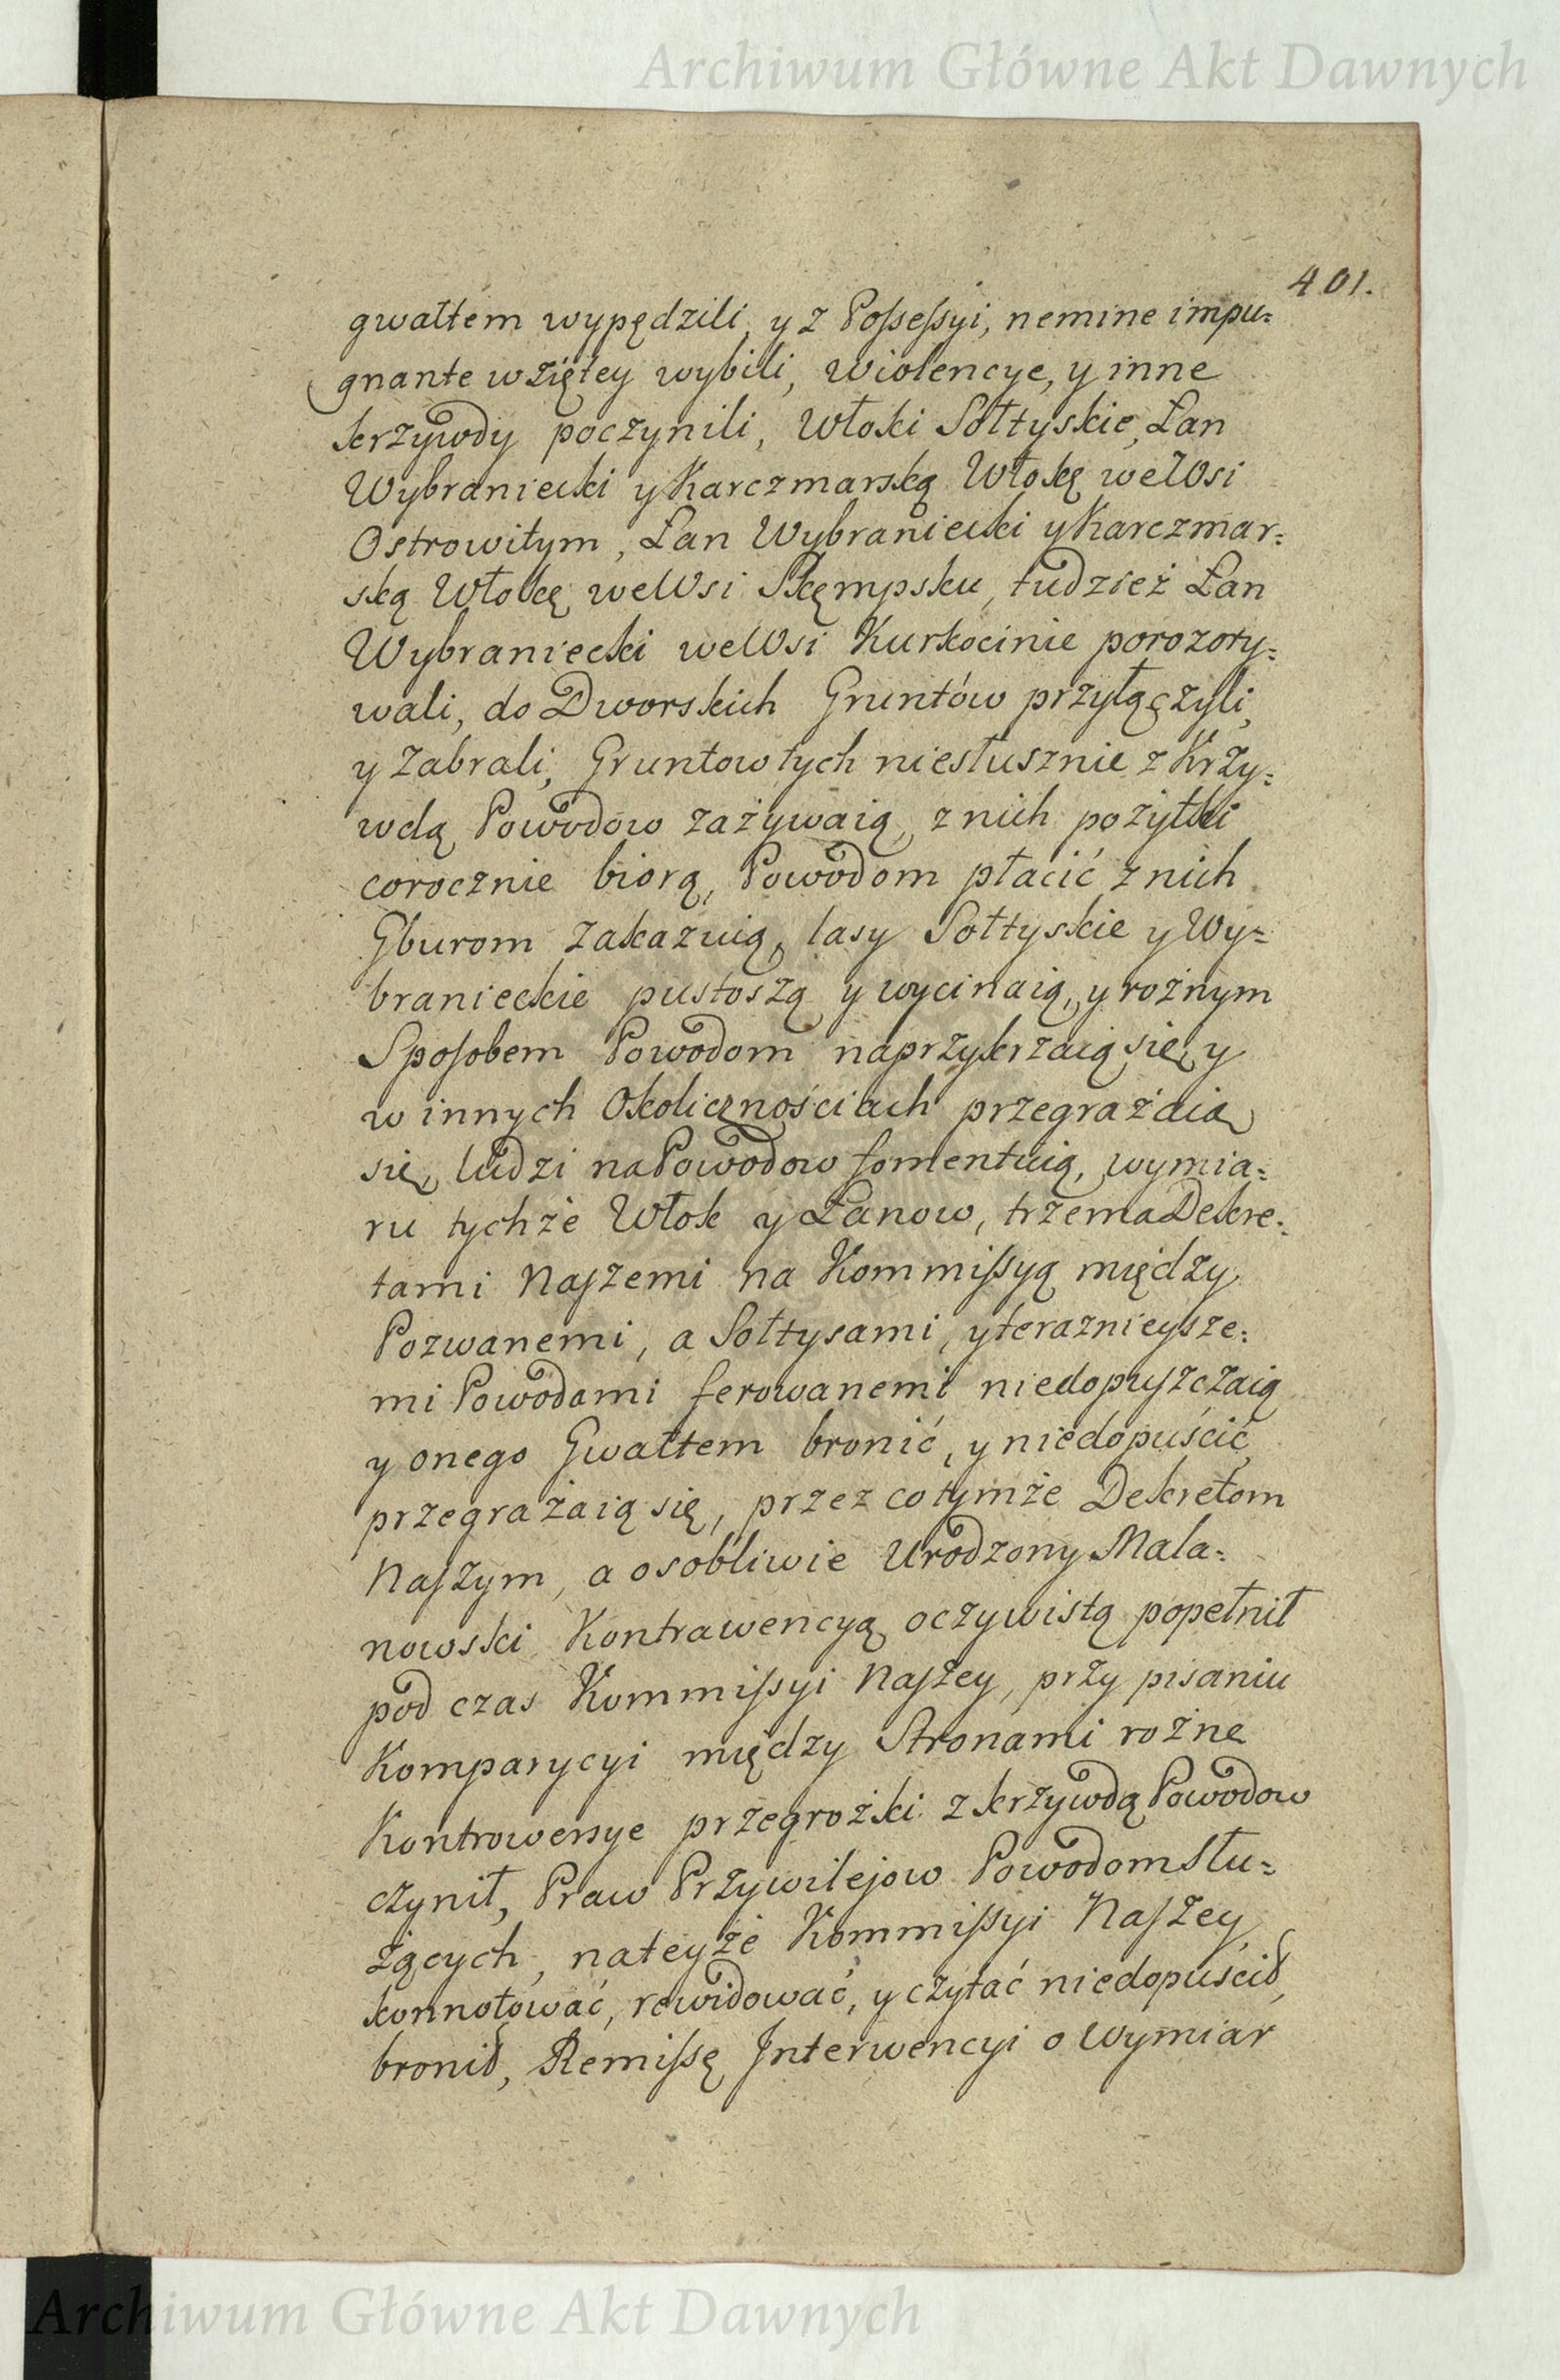 Archiwum Główne Akt Dawnych
401.
gwałtem wypędzili, y z Possessyi, nemine impu=
gnante wziętey wybili, wiolencye, y inne
krzywdy poczynili, Włoki Sołtyskie, Łan
Wybraniecki y Karczmarską Włokę we Wsi
Ostrowitym, Łan Wybraniecki y Karczmar=
ską Włokę we Wsi Skępsku, tudzież Łan
Wybraniecki we Wsi Kurkocinie porozory=
wali, do Dworskich Gruntów przyłączyli,
y zabrali, Gruntow tych niesłusznie z Krzy=
wdą Powodow zażywaią, z nich pożytki
corocznie biorą, Powodom płacić z nich
Gburom zakazuią, lasy Sołtyskie y Wy=
branieckie pustoszą y wycinaią, y rożnym
Sposobem Powodom naprzykrzaią się, y
w innych Okolicznościach przegrażaią
się, ludzi na Powodow fomentuią, wymia=
ru tychże Włok y Łanow, trzema Dekre=
tami Naszemi na Kommissyą między
Pozwanemi, a Sołtysami, y teraznieysze=
mi Powodami ferowanemi niedopuszczaią
y onego Gwałtem bronić, y niedopuścić
przegrażaią się, przez co tymże Dekretom
Naszym, a osobliwie Urodzony Mala=
nowski Kontrawencyą oczywistą popełnił
pod czas Kommissyi Naszey, przy pisaniu
Komparycyi między Stronami rożne
Kontrowersye przegrożki z krzywdą Powodow
czynił, Praw Przywilejow Powodom słu=
żących, na teyże Kommissyi Naszey,
konnotować, rewidować, y czytać niedopuścił,
bronił, Remissę Interwencyi o wymiar
Archiwum Główne Akt Dawnych